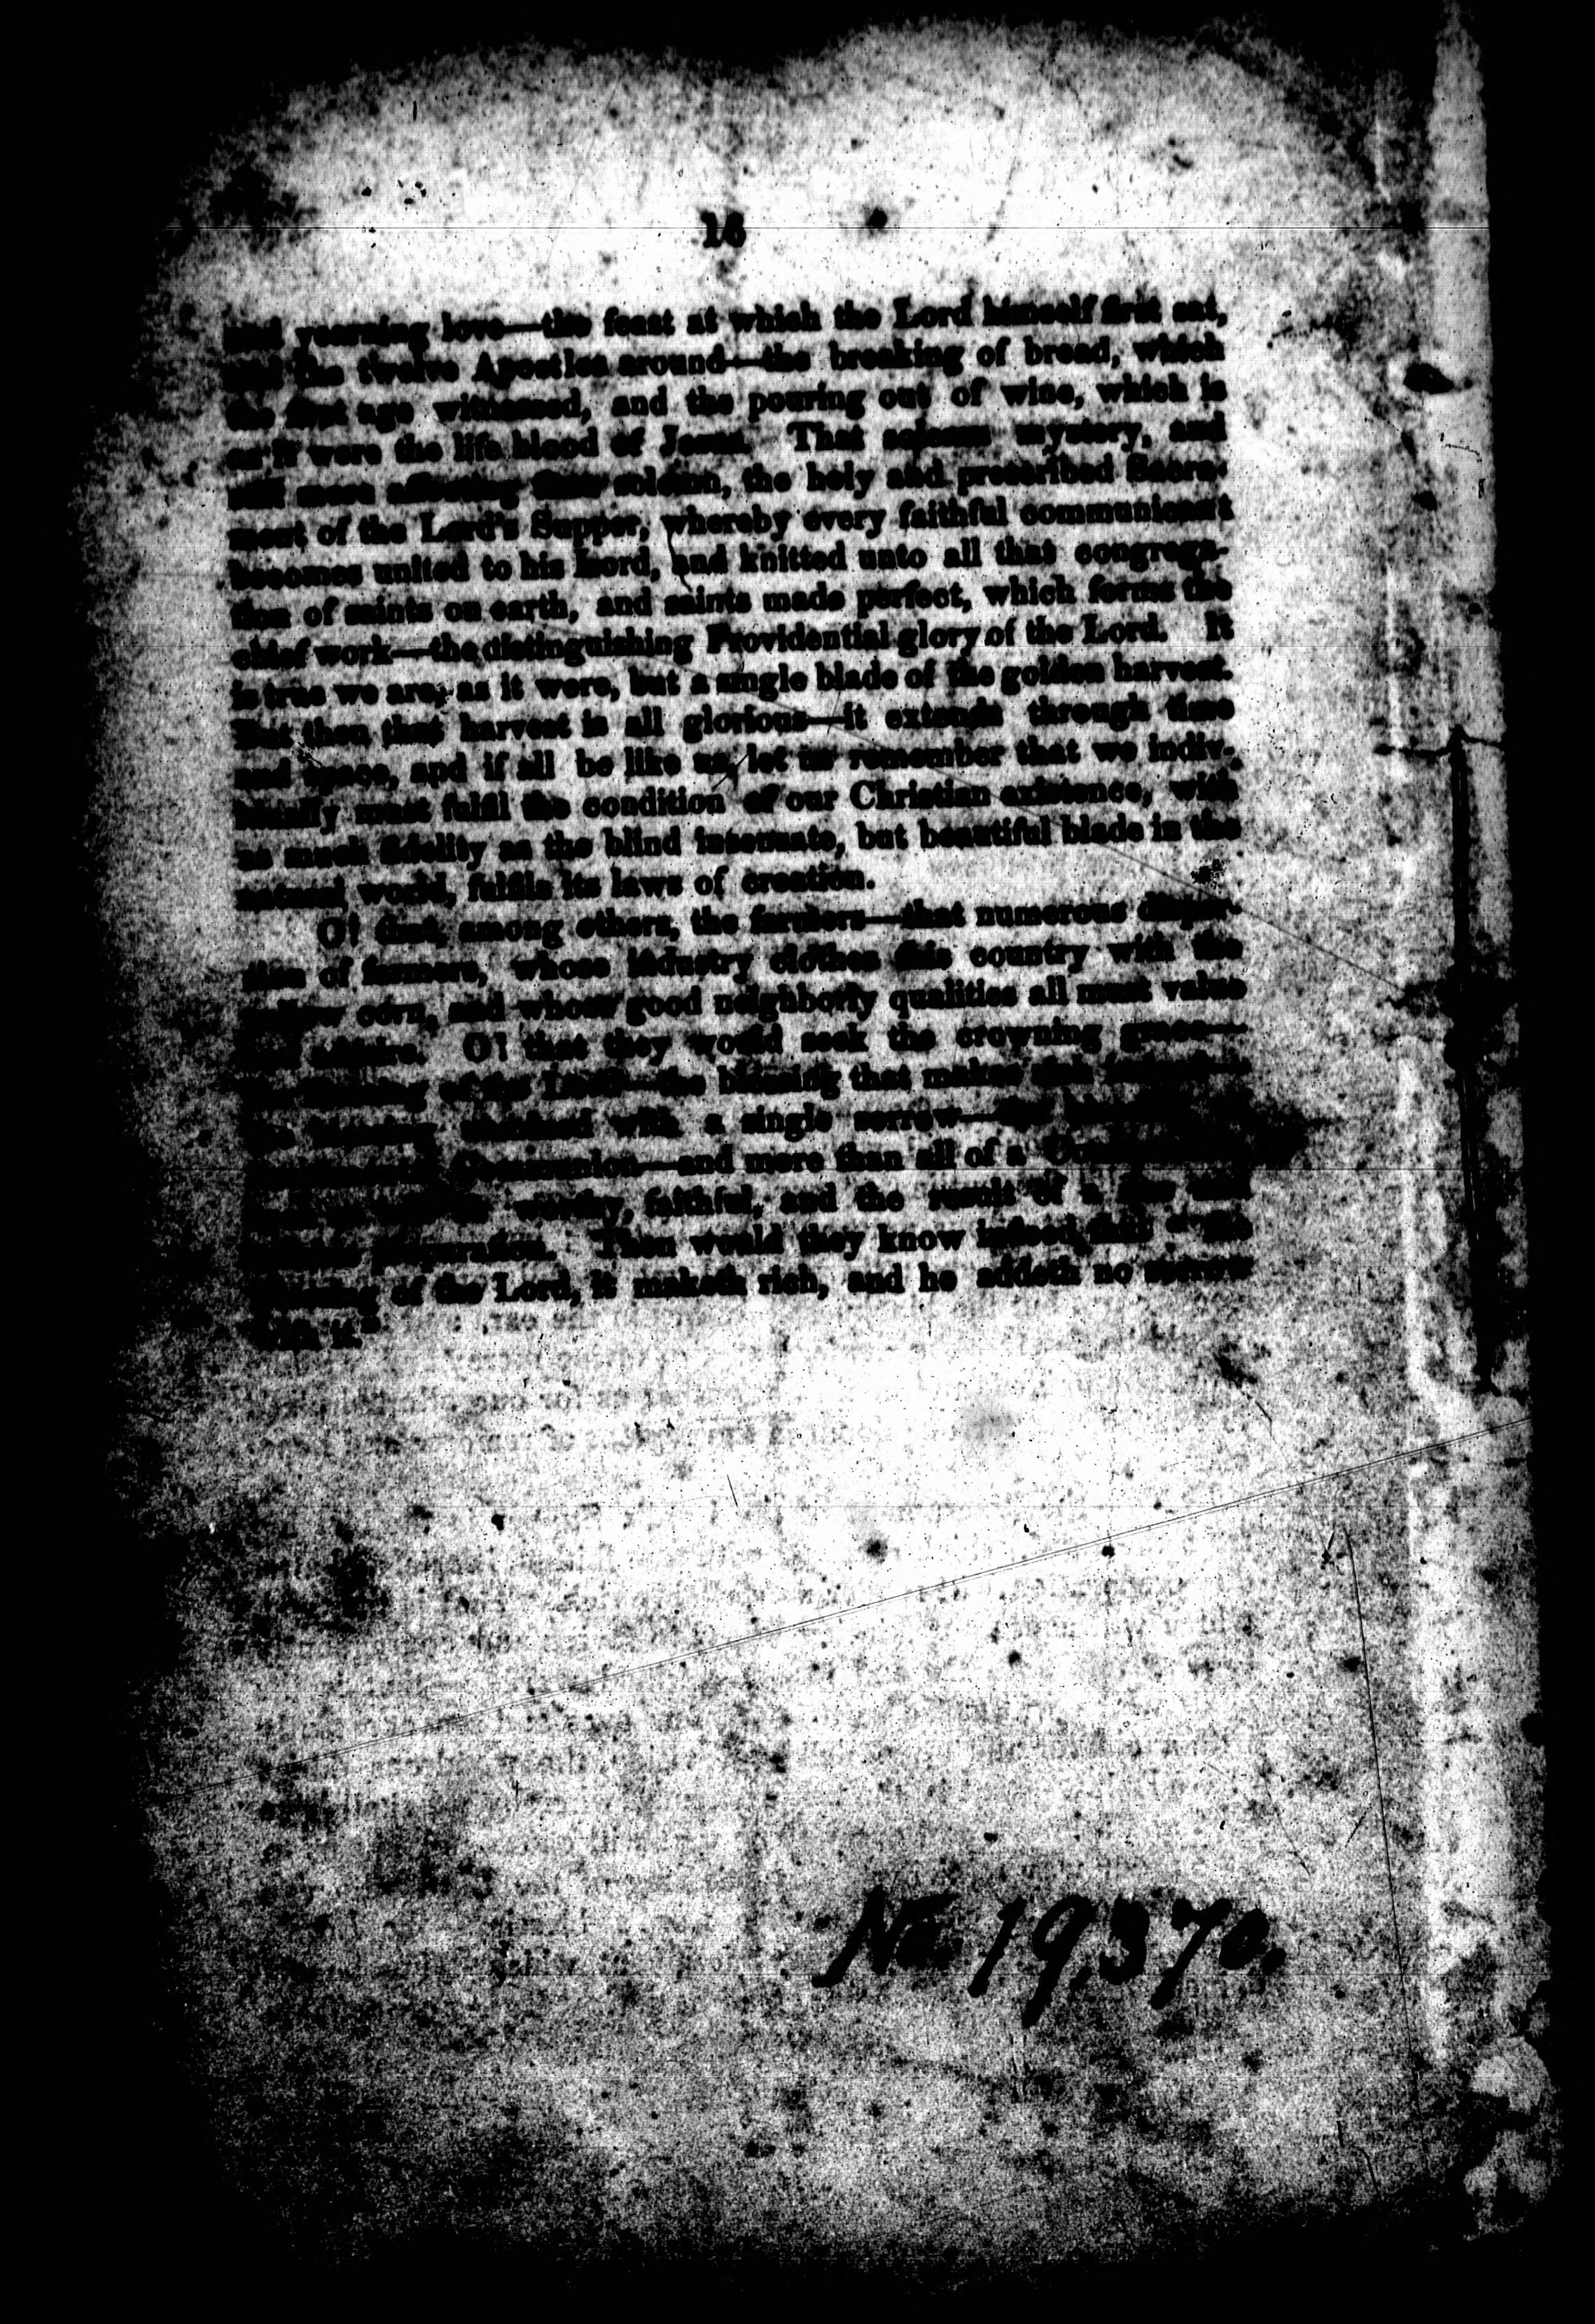 16
yearning love—the feast at which the Lord himself first sat,
the twelve Apostles around—the breaking of bread, which
the first age witnessed, and the pouring out of wine, which is
as it were the life blood of Jesus. That solemn mystery, and
still more affecting than solemn, the holy and prescribed Sacra-
ment of the Lord's Supper, whereby every faithful communicant
becomes united to his Lord, and knitted unto all that congrega-
tion of saints on earth, and saints made perfect, which forms the
chief work—the distinguishing Providential glory of the Lord. It
is true we are, as it were, but a single blade of the golden harvest.
But then that harvest is all glorious—it extends through time
and space, and if all be like us, let us remember that we indiv-
idually must fulfil the condition of our Christian existence, with
as much fidelity as the blind insensate, but beautiful blade in the
natural world, fulfils its laws of creation.
O! that, among others, the farmers—that numerous
of farmers, whose industry clothes this country with the
yellow corn, and whose good neighborly qualities all must value
and admire. O! that they would seek the crowning grace—
the blessing of the Lord—the blessing that makes
with a single sorrow—the
Communion—and more than all of a
worthy, faithful, and the result of a
preparation. Then would they know indeed, that "the
blessing of the Lord, it maketh rich, and he addeth no sorrow
with it."
No. 19,370.